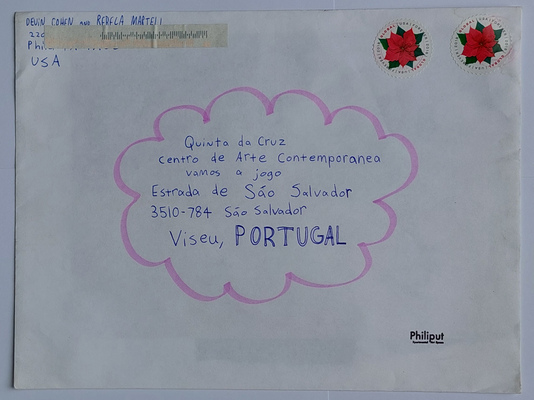 DEVIN COHEN AND REBECA MARTELL
220
Phil
USA
Quinta da Cruz
centro de Arte Contemporanea
vamos a jogo
Estrada de São Salvador
3510-784 São Salvador
Viseu, PORTUGAL
Philiput